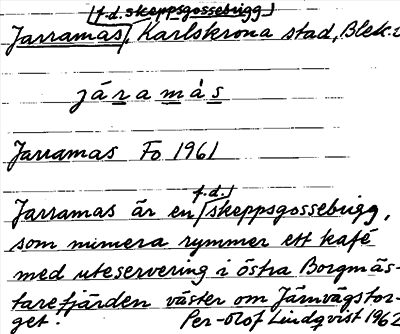 [f.d. skeppsgossebrigg]
Jarramas, Karlskrona stad, Blek.
järamàs
Jarramas Fo 1961
f.d.
Jarramas är en skeppsgossebrigg,
som numera rymmer ett kafé
med uteservering i östra Borgmäs-
tarefjärden väster om Järnvägstor-
get. Per-Olof Lindqvist 1962